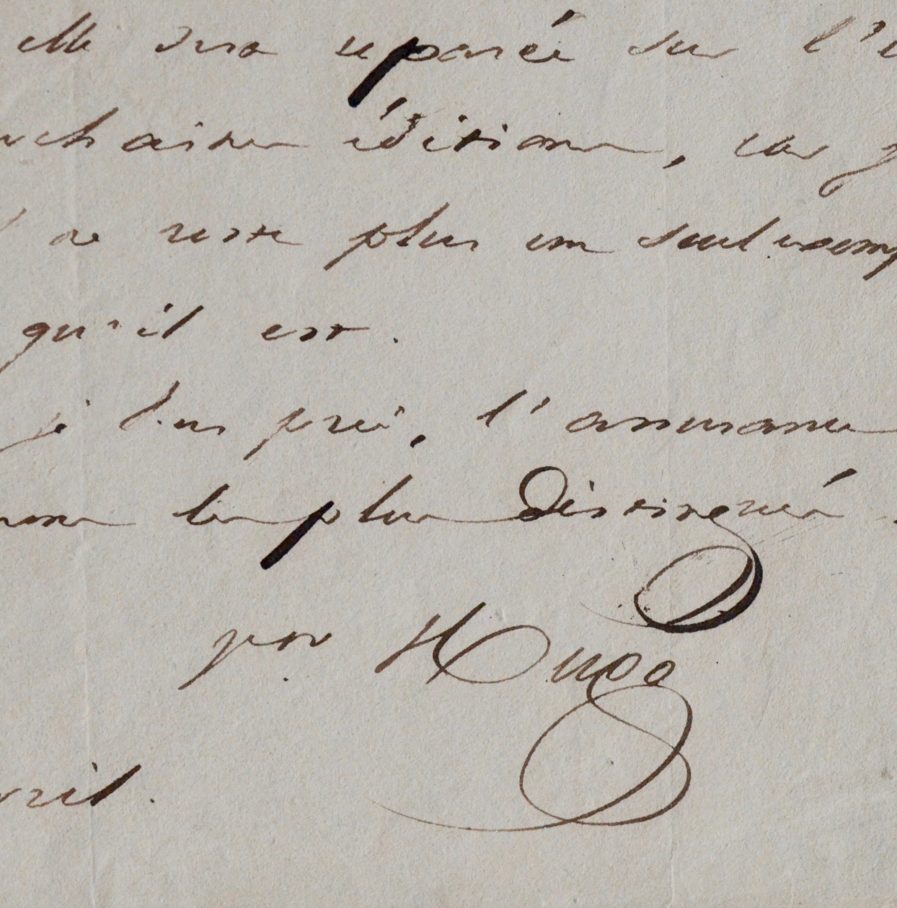 elle sera reparée sur l'
chaines éditions, car j
ne reste plus un seul exemp
qu'il est.
je vous prie, l'assurance
les plus distingués.
pour Hugo
vril.